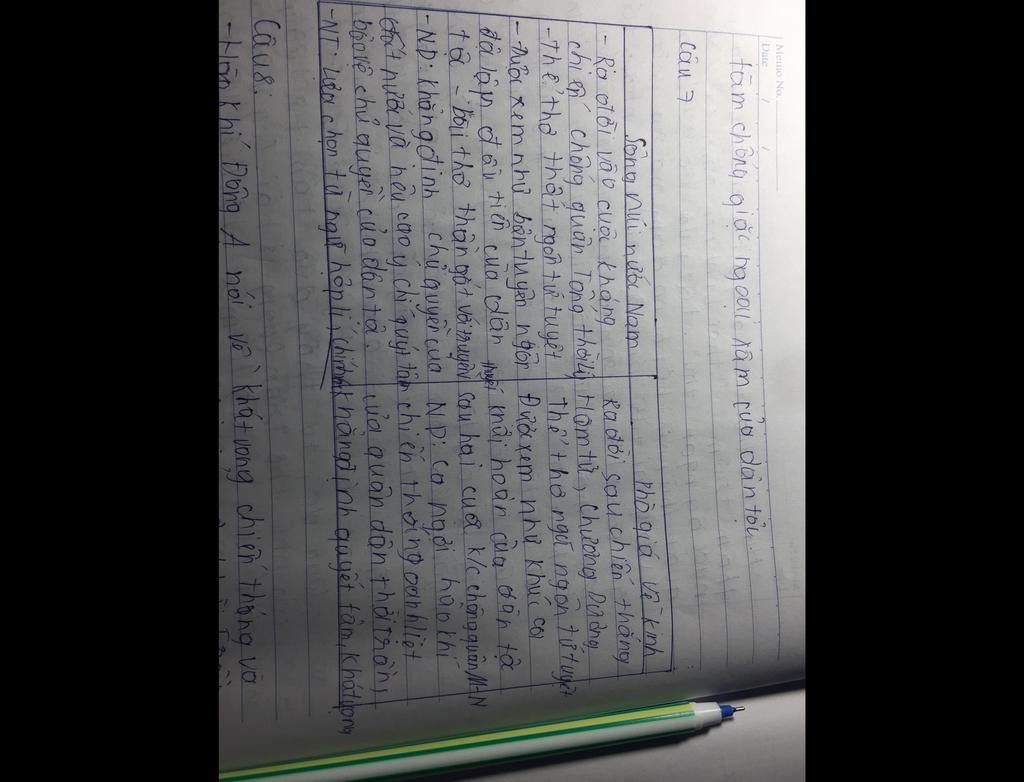 Memo No.
Date
tâm chống giặc ngoại xâm của dân tộc.
Câu 7
Sông núi nước Nam
Phò giá về kinh
- Ra đời vào cuộc kháng
chiến chống quân Tống thời Lý
- Thể thơ thất ngôn tứ tuyệt
- được xem như bản tuyên ngôn
độc lập đầu tiên của dân
tộc - bài thơ thần gắn với truyền thuyết
- ND: Khẳng định chủ quyền của
đất nước và nêu cao ý chí quyết tâm
bảo vệ chủ quyền của dân tộc
- NT lựa chọn từ ngữ hợp lí
Ra đời sau chiến thắng
Hàm tử, chương Dương,
Thể thơ ngũ ngôn tứ tuyệt
Được xem như khúc ca
khải hoàn của dân tộc
sau hai cuộc k/c chống quân M-N
ND: Ca ngợi hào khí
chiến thắng oanh liệt
của quân dân thời Trần,
khẳng định quyết tâm, khát vọng
Câu 8:
- Hào khí Đông A nói về khát vọng chiến thắng và